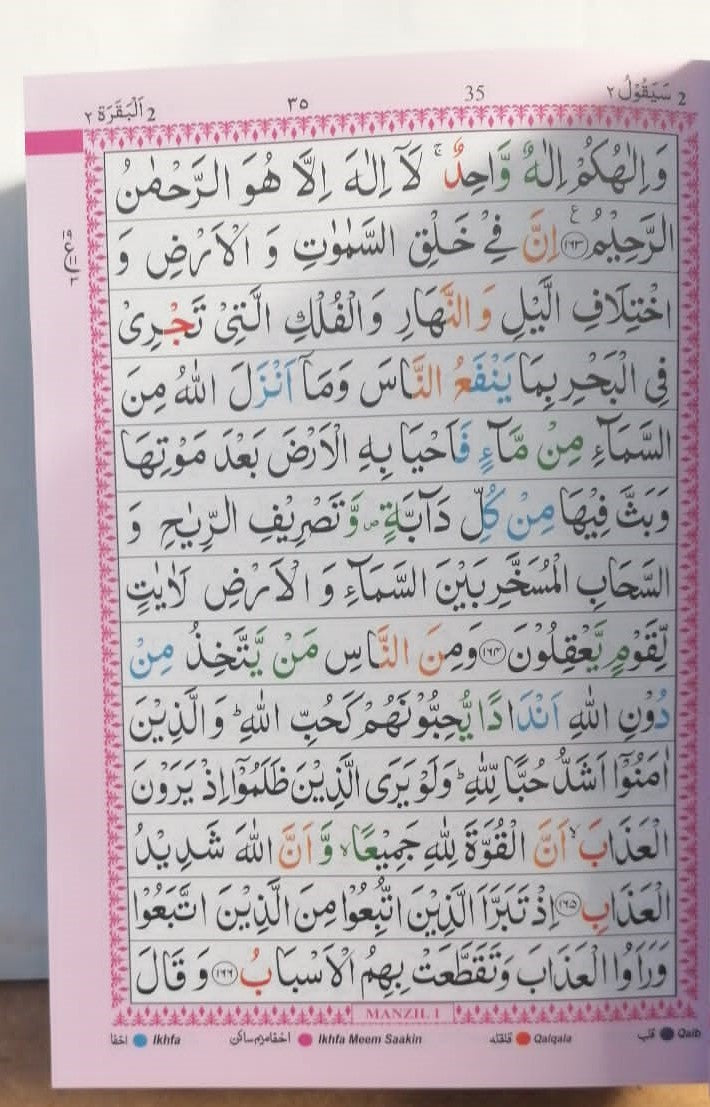 2 سَيَقُوْلُ ٢ 35 ٣٥ 2 اَلْبَقَرَة ٢
وَاِلٰهُكُمْ اِلٰهٌ وَّاحِدٌ ۚ لَاۤ اِلٰهَ اِلَّا هُوَ الرَّحْمٰنُ
الرَّحِيْمُ ﴿١٦٣﴾ اِنَّ فِيْ خَلْقِ السَّمٰوٰتِ وَ الْاَرْضِ وَ
اخْتِلَافِ الَّيْلِ وَ النَّهَارِ وَ الْفُلْكِ الَّتِيْ تَجْرِيْ
فِي الْبَحْرِ بِمَا يَنْفَعُ النَّاسَ وَمَاۤ اَنْزَلَ اللهُ مِنَ
السَّمَآءِ مِنْ مَّآءٍ فَاَحْيَا بِهِ الْاَرْضَ بَعْدَ مَوْتِهَا
وَبَثَّ فِيْهَا مِنْ كُلِّ دَآبَّةٍ ۪ وَّ تَصْرِيْفِ الرِّيٰحِ وَ
السَّحَابِ الْمُسَخَّرِ بَيْنَ السَّمَآءِ وَ الْاَرْضِ لَاٰيٰتٍ
لِّقَوْمٍ يَّعْقِلُوْنَ ﴿١٦٤﴾ وَمِنَ النَّاسِ مَنْ يَّتَّخِذُ مِنْ
دُوْنِ اللهِ اَنْدَادًا يُّحِبُّوْنَهُمْ كَحُبِّ اللهِ ؕ وَ الَّذِيْنَ
اٰمَنُوْۤا اَشَدُّ حُبًّا لِّلّٰهِ ؕ وَلَوْ يَرَى الَّذِيْنَ ظَلَمُوْۤا اِذْ يَرَوْنَ
الْعَذَابَ ۙ اَنَّ الْقُوَّةَ لِلّٰهِ جَمِيْعًا ۙ وَّ اَنَّ اللهَ شَدِيْدُ
الْعَذَابِ ﴿١٦٥﴾ اِذْ تَبَرَّاَ الَّذِيْنَ اتُّبِعُوْا مِنَ الَّذِيْنَ اتَّبَعُوْا
وَرَاَوُا الْعَذَابَ وَتَقَطَّعَتْ بِهِمُ الْاَسْبَابُ ﴿١٦٦﴾ وَ قَالَ
MANZIL 1
اخفا Ikhfa اخفا ميم ساكن Ikhfa Meem Saakin قلقله Qalqala قلب Qalb